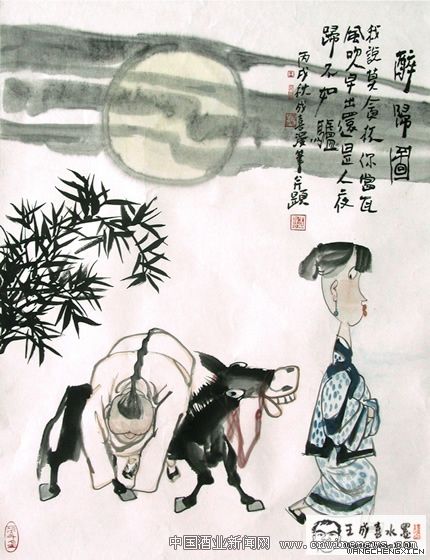 醉歸圖
我說莫貪夜你當瓦
風吹早出還是人夜
歸不如驢
丙戌秋成喜漫筆并題
王成喜水墨
WANGCHENGXI.CN
中国酒业新闻网 www.cnwinenews.com